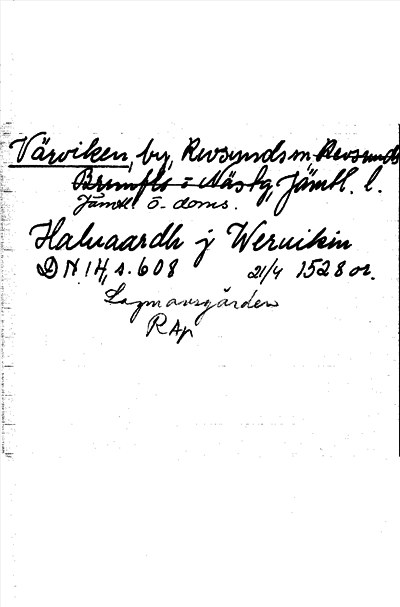 Värviken, by, Revsunds sn, Revsunds
Brunflo o Näs tg, Jämtl. l.
Jämtl Ö. doms.
Haluaardh j Weruikin
DN 14, s. 608 21/4 1528 or.
Lagmansgården
RAp